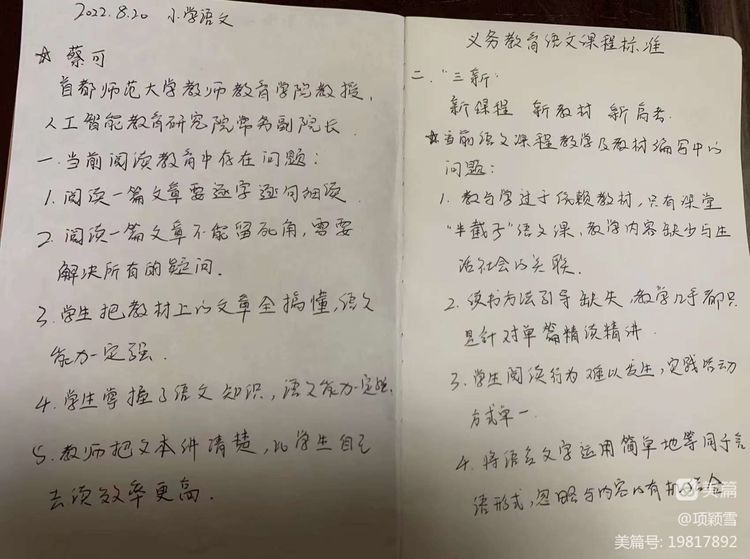 2022.8.20 小学语文
☆ 蔡可
首都师范大学教师教育学院教授,
人工智能教育研究院常务副院长.
一.当前阅读教育中存在问题:
1.阅读一篇文章要逐字逐句细读.
2.阅读一篇文章不能留死角,需要
解决所有的疑问.
3.学生把教材上的文章全搞懂,语文
能力一定强.
4.学生掌握了语文知识,语文能力一定强.
5.教师把文本讲清楚,比学生自己
去读效率更高.
义务教育语文课程标准
二."三新"
新课程 新教材 新高考.
☆当前语文课程教学及教材编写中的
问题:
1.教与学过于依赖教材,只有课堂
"半截子"语文课,教学内容缺少与生
活社会的关联.
2.读书方法引导缺失,教学几乎都只
是针对单篇精读精讲.
3.学生阅读行为难以发生,实践活动
方式单一.
4.将语言文字运用简单地等同于言
语形式,忽略与内容的有机结合
美篇
@项颖雪
美篇号: 19817892